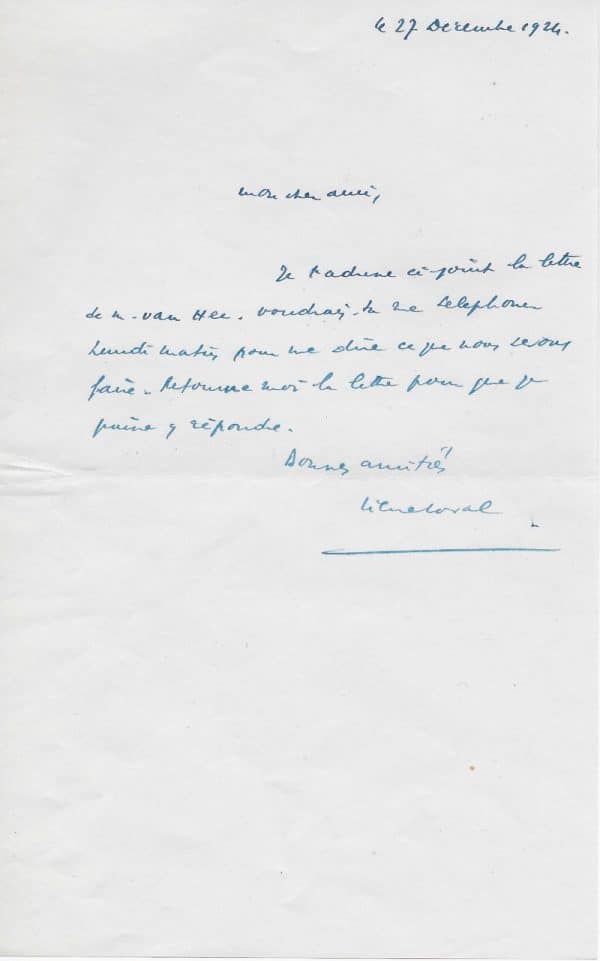 le 27 Décembre 1924.
mon cher ami,
Je t'adresse ci-joint la lettre
de m. van Hee. voudrais-tu me telephoner
Lundi matin pour me dire ce que nous devons
faire. Retourne moi la lettre pour que je
puisse y répondre.
Bonnes amitiés